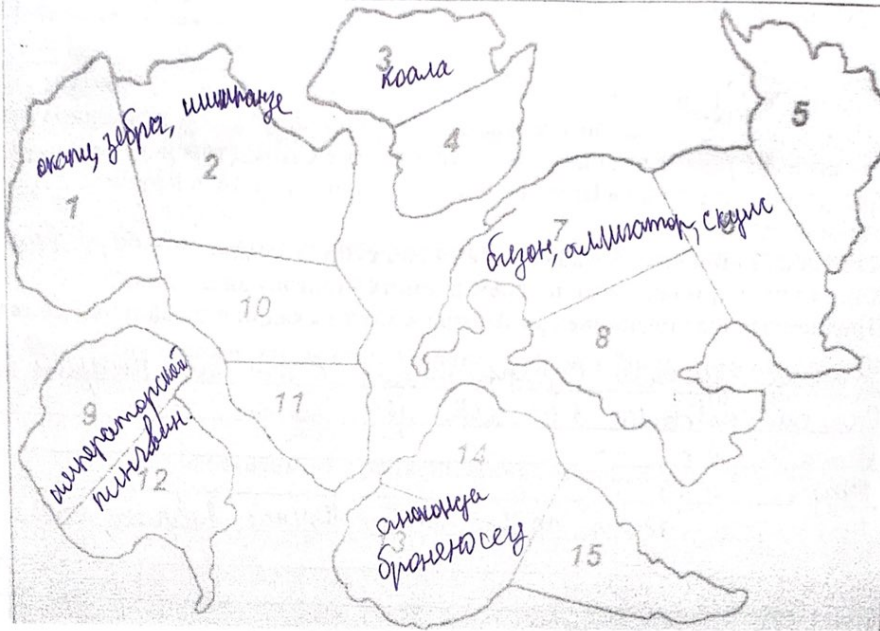 3
коала
4
5
окапи, зебра, шимпанзе
2
1
7
6
бизон, аллигатор, скунс
10
8
9
11
императорский
пингвин
12
14
анаконда
13
броненосец
15